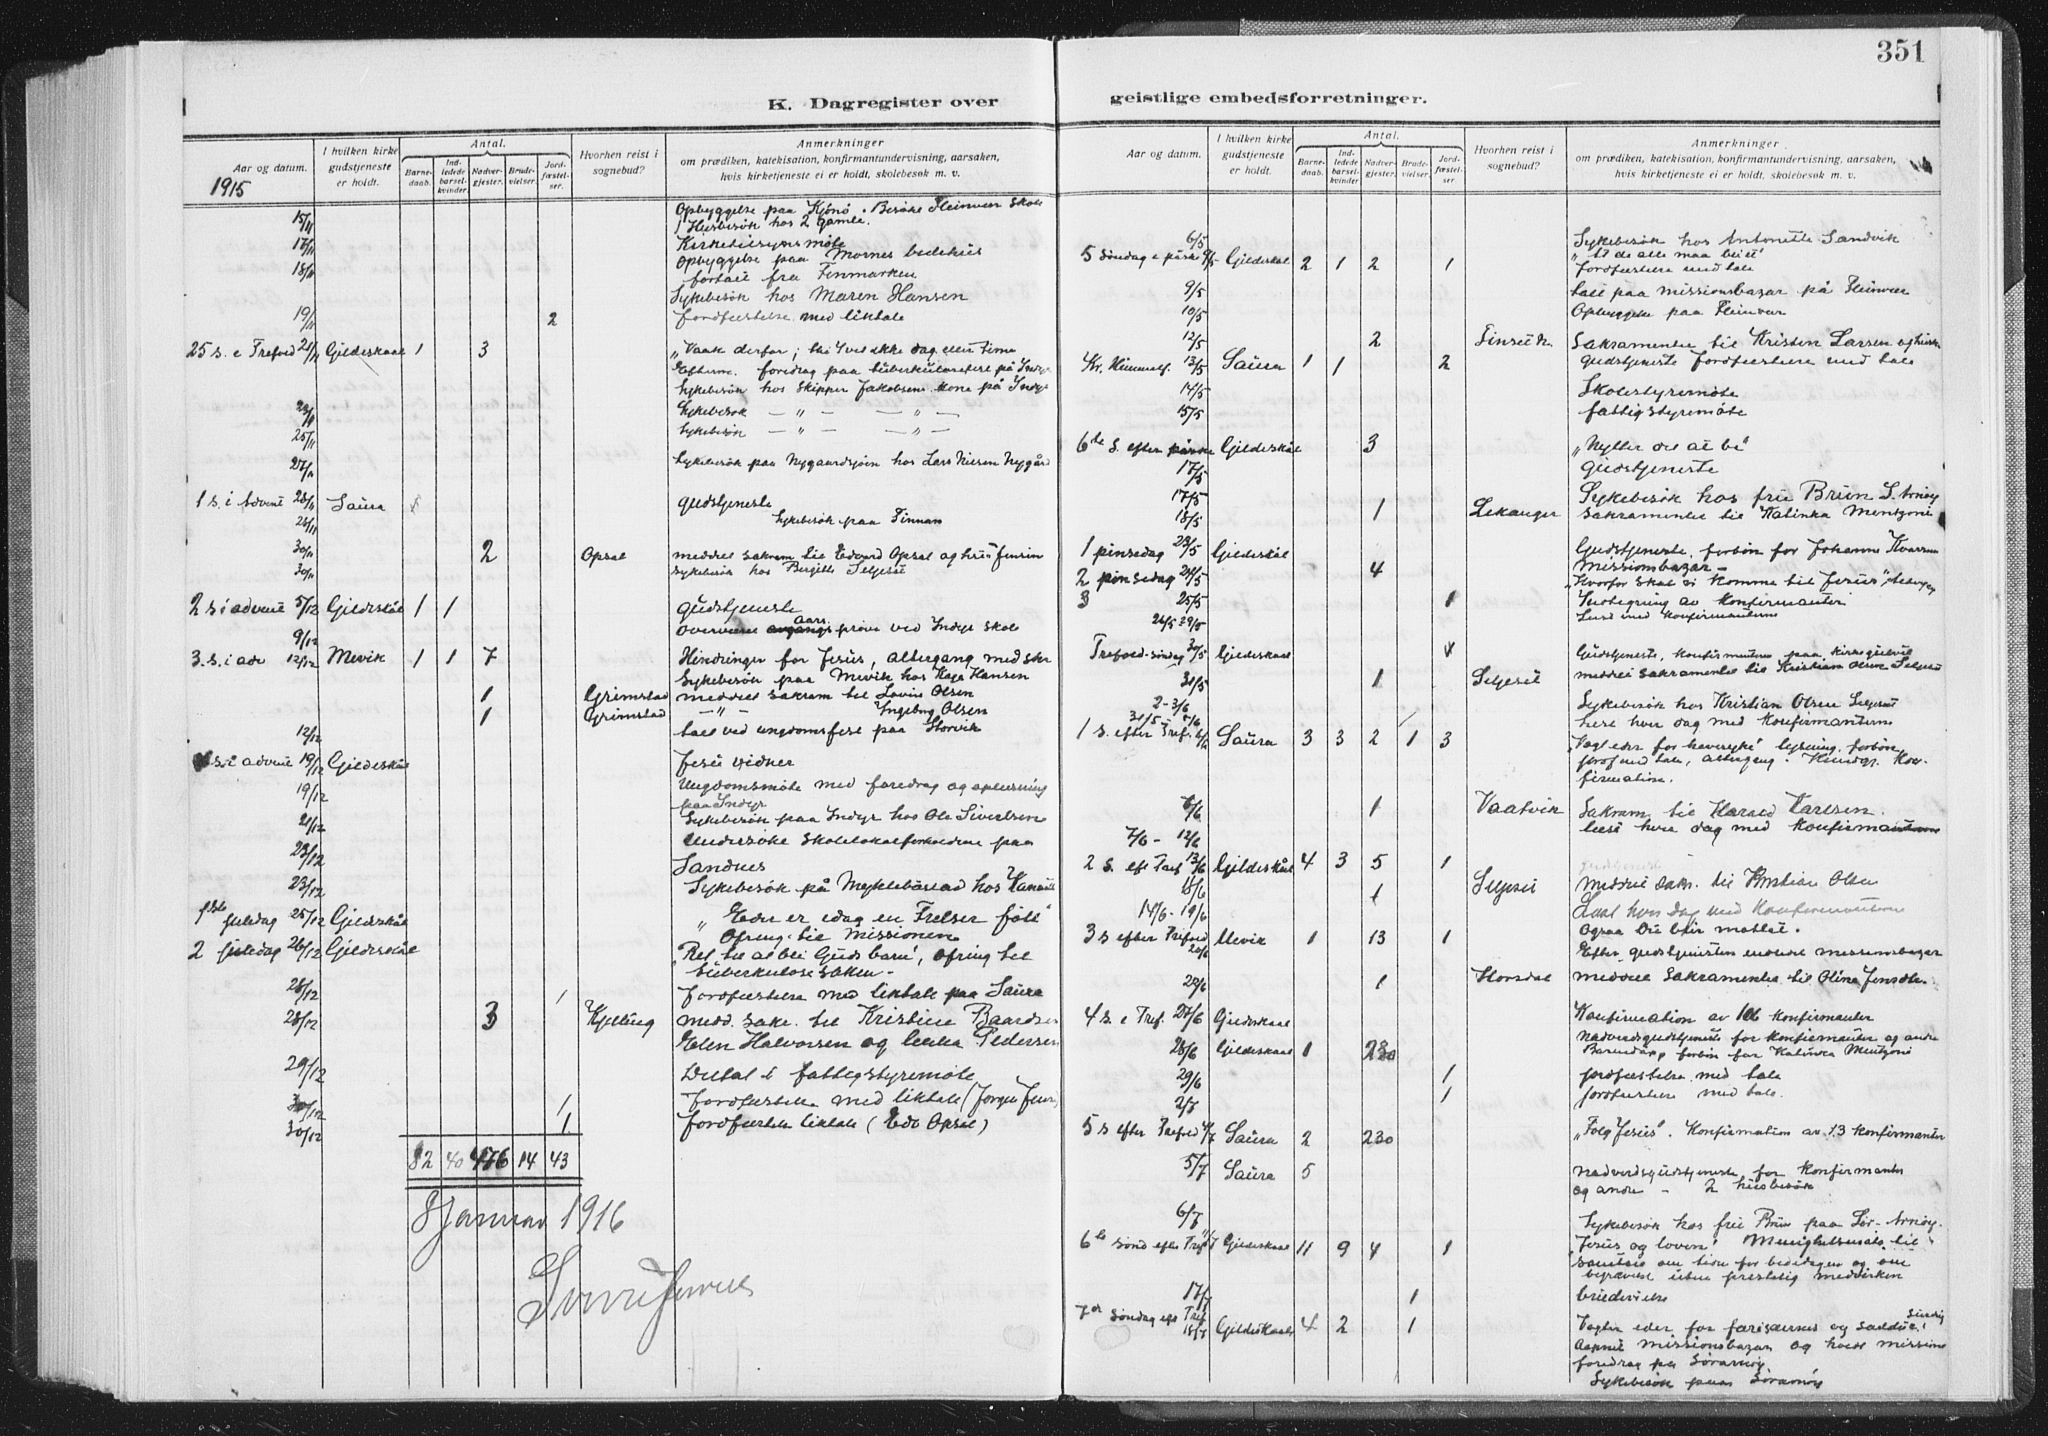 351
K. Dagregister over
geistlige embedsforretninger.
Aar og datum.
1915
I hvilken kirke gudstjeneste er holdt.
Antal.
Barnedaab.
Indledede barselkvinder
Nadvergjester.
Brudevielser.
Jordfæstelser.
Hvorhen reist i sognebud?
Anmerkninger
om prædiken, katekisation, konfirmantundervisning, aarsaken,
hvis kirketjeneste ei er holdt, skolebesøk m. v.
15/11 Opbyggelse paa Kjönö. Besøke Fleinvær Skole
Husbesök hos 2 gamle.
17/11 Kirketilsynsmöte
18/11 Opbyggelse paa Mornes bedehus
fra Finmarken
Sykebesök hos Maren Hansen
19/11 2 Jordfæstelse med liktale
25 s. e Trefold 21/11 Gildeskaal 1 3 "Vaak derfor; thi I vet ikke dag eller time
Efterm. foredrag paa tuberkulosefest på Indyr
Sykebesök hos skipper Jakobsens kone på Indyr
23/11 Sykebesök — " — — " —
25/11 Sykebesök — " — — " —
27/11 Sykebesök paa Nygaardsjöen hos Lars Nilsen Nygård
1 s. i Advent 28/11 Saura Gudstjeneste
Sykebesök paa Finnan
30/11 2 Opsal meddel sakram til Edvard Opsal og hustru
30/11 sykebesök hos Bergitte Seljeset
2 s i advent 5/12 Gildeskål 1 1 Gudstjeneste
overvære aarsprøve ved Indyr skole
9/12
3. s. i adv 12/12 Mevik 1 1 7 Hindringer for Jesus, altergang med skr
Sykebesök paa Mevik hos Kaja Hansen
1 Grimstad meddel sakram til Lovise Olsen
1 Grimstad — " — Ingeborg Olsen
12/12 tale ved ungdomsfest paa Storvik
s i advent 19/12 Gildeskål Jesu vidner
19/12 Ungdomsmöte med foredrag og oplæsning
paa Indyr
21/12 Sykebesök paa Indyr hos Ole Sivertsen
23/12 Undersöke skolelokalforholdene paa
Sandnes
23/12 Sykebesök på Myklebostad hos
juledag 25/12 Gildeskål "Eder er idag en Frelser födt"
Ofring til Missionen
2 juledag 26/12 Gildeskål "Ret til at bli Guds barn", ofring til
tuberkulose saken -
28/12 1 Jordfæstelse med liktale paa Saura
28/12 3 Kjelling medd. sakr. til Kristine Baardsen
Elen Halvorsen og Pedersen
29/12 Deltat i fattigstyremöte
30/12 1 Jordfæstelse med liktale (Jörgen Jens
30/12 1 Jordfæstelse liktale (Edv Opsal)
82 40 476 14 43
8 Januar 1916
Aar og datum.
I hvilken kirke gudstjeneste er holdt.
Antal.
Barnedaab.
Indledede barselkvinder
Nadvergjester.
Brudevielser.
Jordfæstelser.
Hvorhen reist i sognebud?
Anmerkninger
om prædiken, katekisation, konfirmantundervisning, aarsaken,
hvis kirketjeneste ei er holdt, skolebesøk m. v.
6/5 Sykebesök hos Antonette Sandvik
5 Söndag e påske 9/5 Gildeskål 2 1 2 1 "at de alle maa bli et"
Jordfæstelse med tale
9/5 tale paa missionsbazar på Fleinvær
10/5 Opbyggelse paa Fleinvær
12/5 2 Finset Sakramentet til Kristen Larsen og hustru
Kr. Himmelf. 13/5 Saura 1 1 2 gudstjeneste Jordfæstelse med tale
14/5 Skolestyremöte
15/5 fattigstyremöte
6te S. efter påske Gildeskål 3 "Nytter det at be"
17/5 Gudstjeneste
17/5 Sykebesök hos fru Brun S. Arnöy
18/5 1 Lekanger Sakramentet til Katinka Mentzoni
1 pinsedag 23/5 Gildeskål Gudstjeneste, forbön for Johanne
Missionsbazar -
2 pinsedag 24/5 4 "Hvorfor skal vi komme til Jesus",
3 25/5 1 Indtegning av konfirmanter
26/5-29/5 Læst med konfirmanterne
Trefold-söndag 30/5 Gildeskaal 4 Gudstjeneste, konfirmanterne paa kirkegulvet
31/5 1 Seljeset meddel sakramentet til Kristian Olsen Seljeset
2-3/6 Sykebesök hos Kristian Olsen Seljeset
31/5-5/6 læse hver dag med konfirmanterne
1 s. efter Tref. 6/6 Saura 3 3 2 1 3 "Vogt eder for havesyke" lysning, forbön
jordf med tale, altergang. Kundgj. Kon-
firmation.
6/6 1 Vaatvik Sakram til Harald Karlsen
7/6 - 12/6 læst hver dag med konfirmanterne
2 s. eft Tref 13/6 Gildeskål 4 3 5 1 gudstjeneste
15/6 1 Seljeset Meddel Sakr. til Kristian Olsen
14/6 - 19/6 Læst hver dag med Konfirmanterne
3 s efter Trefold 20/6 Mevik 1 13 1 Ogsaa Du blir mættet.
Efter gudstjenesten missionsbazar
22/6 1 Storsdal meddel sakramentet til Oline Jensdtr.
4 s. e Tref. 27/6 Gildeskaal Konfirmation av 106 konfirmanter
28/6 Gildeskaal 1 230 Nadverdgudstjeneste for konfirmanter og andre
Barnedaap forbön for Katinka Mentzoni
29/6 1 jordfæstelse med tale
2/7 1 jordfæstelse med tale.
5 s efter Trefold 4/7 Saura 2 230 "Fölg Jesus". Konfirmation av 13 konfirmanter
5/7 Saura 5 Nadverdgudstjeneste for konfirmanter
og andre - 2 husbesök
6/7 Sykebesök hos fru Brun paa Sör-Arnöy.
6te sönd efter Tref Gildeskaal 11 9 4 1 "Jesus og loven" Menighetsmöte til
samtale om for bededagen og om
begravelse uten prestelig medvirken
17/7 1 brudevielse
7de söndag eft Tref 18/7 Gildeskaal 4 2 1 Vogter eder for farisæernes og sadduc. surdeig
Aapnet missionsbazar og holdt missions
foredrag paa Sörarnöy
Sykebesök paa Sörarnöy